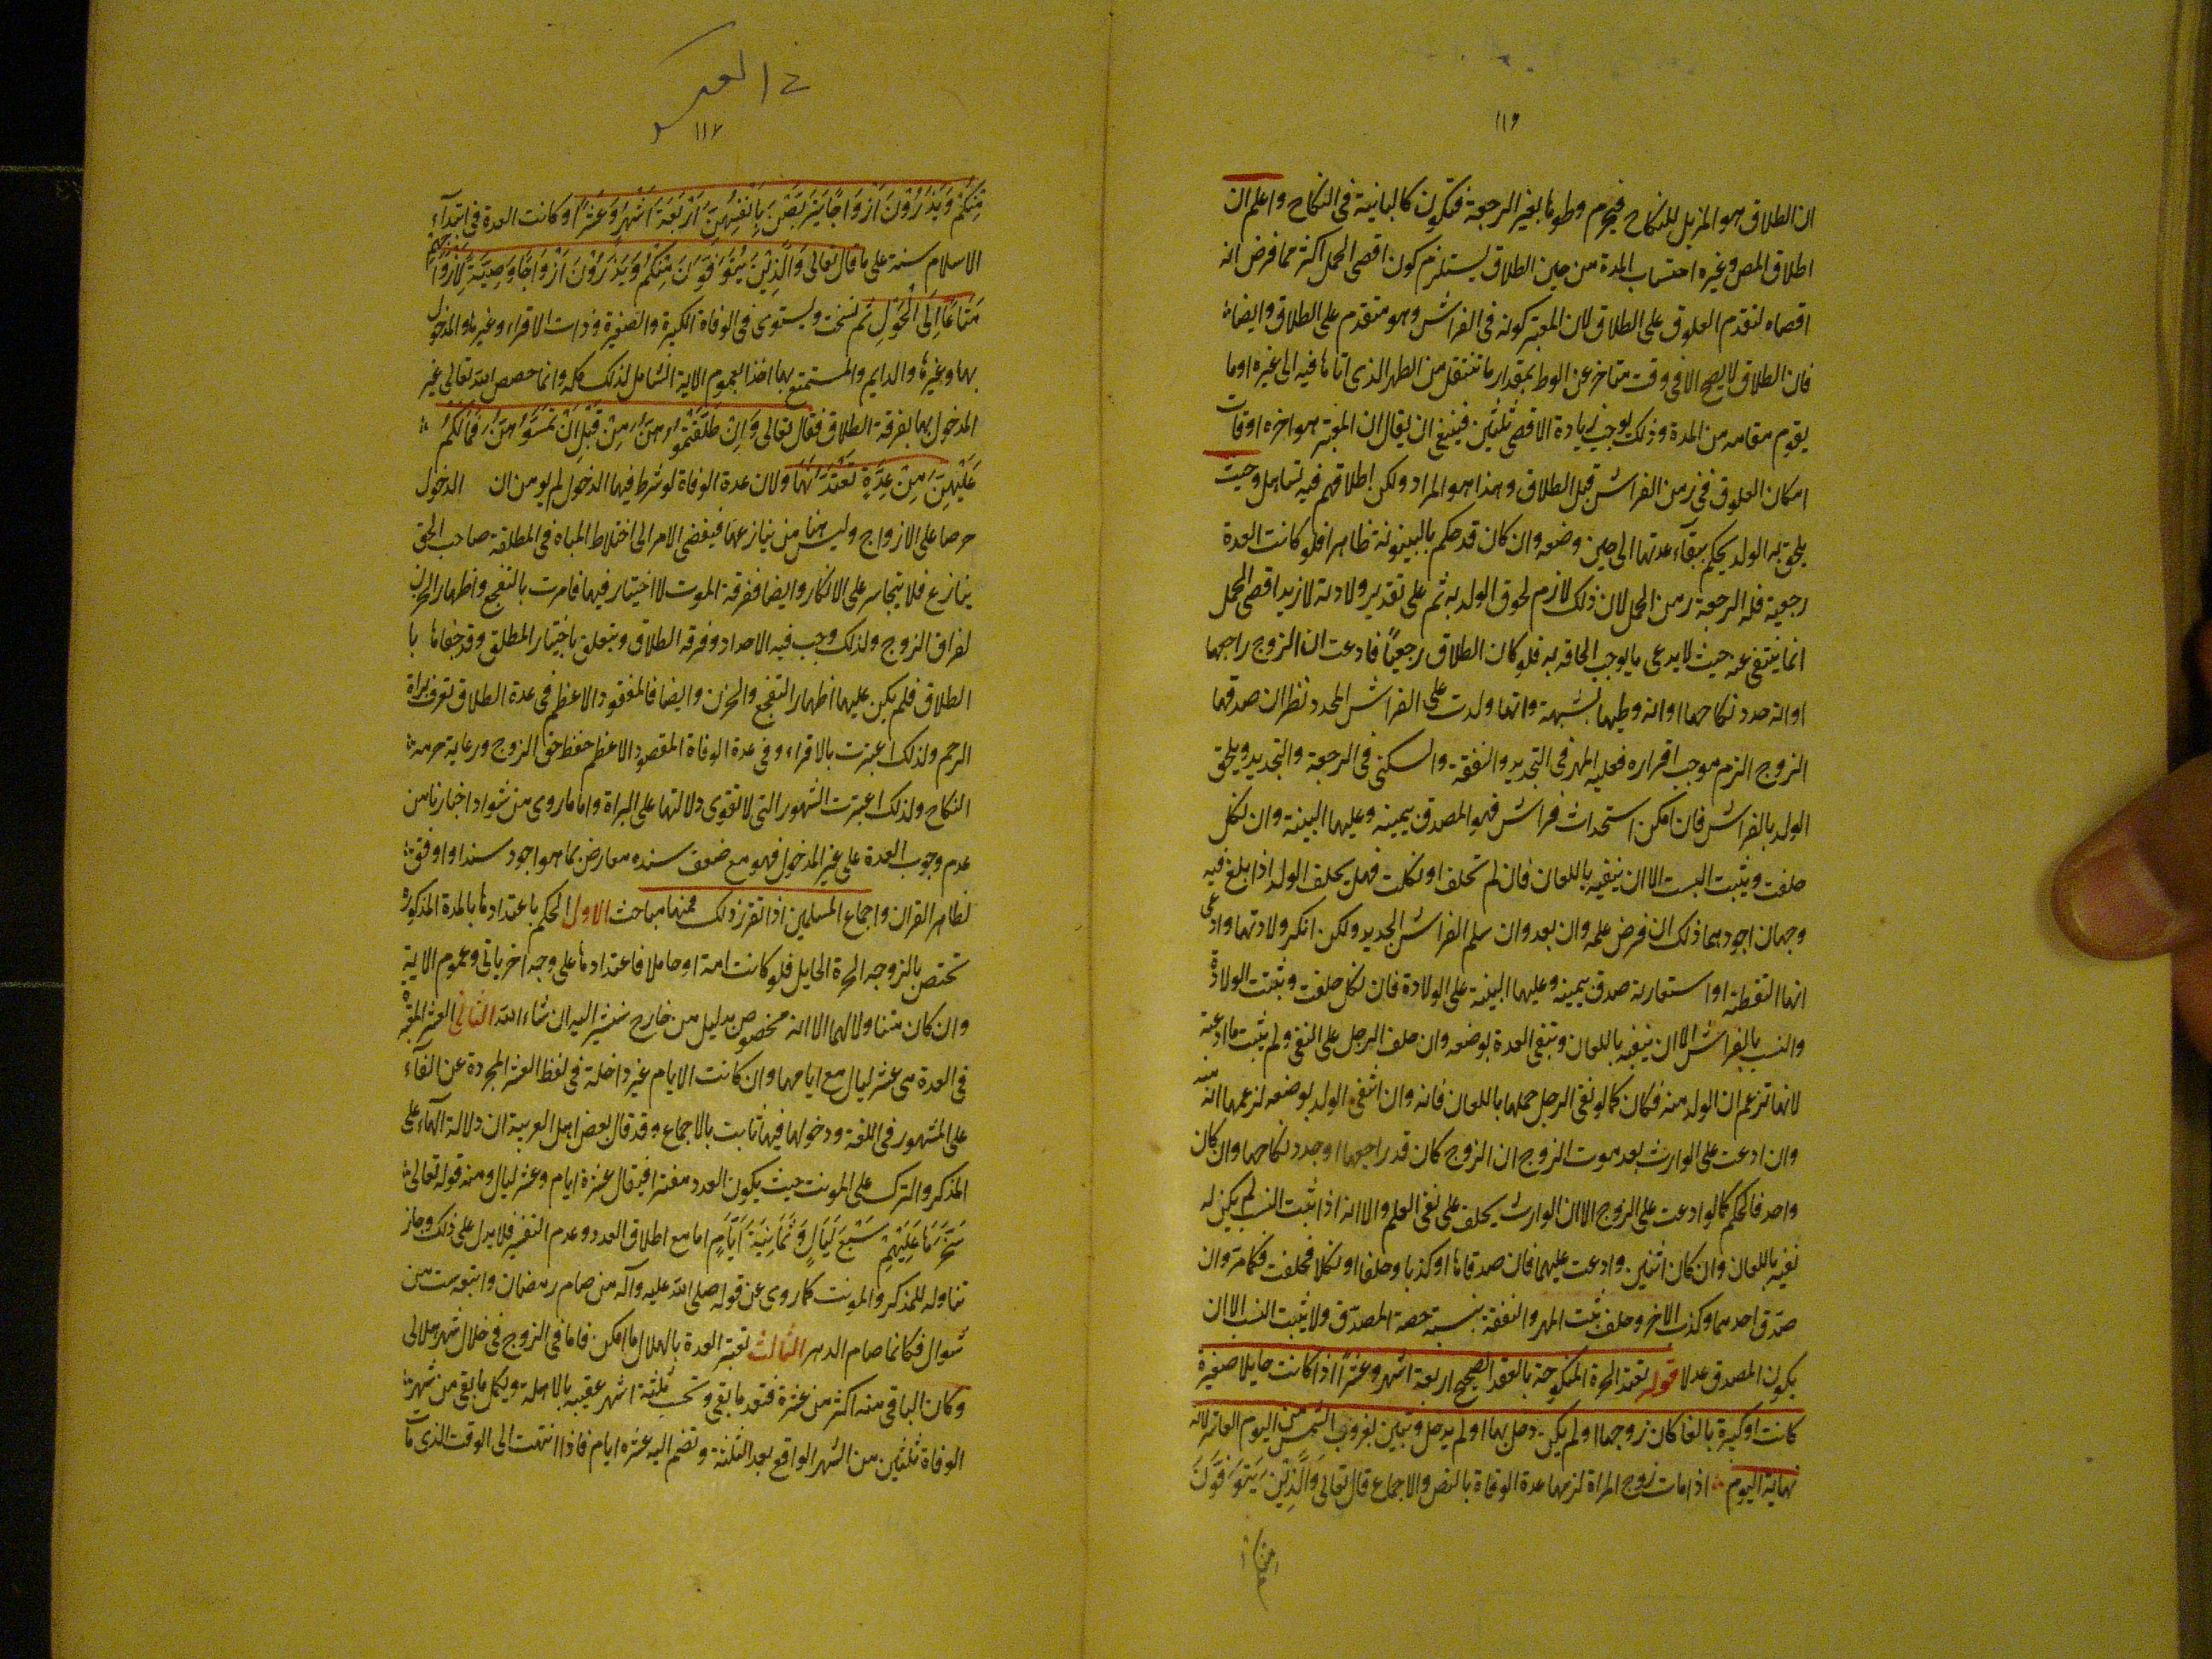 ١١٦
ان الطلاق هو المزيل للنكاح فيحرم وطوها بغير الرجعة فتكون كالباينة في النكاح واعلم ان
اطلاق المص وغيره احتساب المدة من حين الطلاق يستلزم كون اقصى الحمل اكثر مما فرض انه
اقصاه لتقدم العلوق على الطلاق لان المعتبر كونه في الفراش وهو متقدم على الطلاق وايضا
فان الطلاق لا يصح الا في وقت متاخر عن الوطء بمقدار ما تنتقل من الطهر الذي اتاها فيه الى غيره او ما
يقوم مقامه من المدة وذلك يوجب زيادة الاقصى ثلثين فينبغي ان يقال ان المعتبر هو اخر اوقات
امكان العلوق في زمن الفراش قبل الطلاق وهذا هو المراد ولكن اطلاقهم فيه تساهل وحيث
يلحق به الولد يحكم ببقاء عدتها الى حين وضعه وان كان قد حكم بالبينونة ظاهرا فلو كانت العدة
رجعية فله الرجعة زمن الحمل لان ذلك لازم لحوق الولد به ثم على تقدير ولادته لازيد اقصى الحمل
انما ينتفي عنه حيث لا يدعى ما يوجب الحاقه به فلو كان الطلاق رجعيا فادعت ان الزوج راجعها
او انه جدد نكاحها او انه وطيها بشبهة وانها ولدت على الفراش المجدد نظر ان صدقها
الزوج الزم موجب اقراره فعليه المهر في التجديد والنفقة والسكنى في الرجعة والتجديد ويلحق
الولد بالفراش فان امكن استحداث فراش فهو المصدق بيمينه وعليها البينة وان نكل
حلفت ويثبت النسب الا ان ينفيه باللعان فان لم تحلف او نكلت فهل يحلف الولد اذا بلغ فيه
وجهان اجودهما ذلك ان فرض علمه وان بعد وان سلم الفراش الجديد ولكن انكر ولادتها وادعى
انها التقطته او استعارته صدق بيمينه وعليها البينة على الولادة فان نكل حلفت وثبتت الولادة
والنسب بالفراش الا ان ينفيه باللعان وتنقضي العدة بوضعه وان حلف الرجل على النفي ولم يثبت ما ادعته
لانها تزعم ان الولد منه فكان كما لو نفى الرجل حملها باللعان فانه وان انتفى الولد بوضعه لزعمها انه منه
وان ادعت على الوارث بعد موت الزوج ان الزوج كان قد راجعها او جدد نكاحها وان كان
واحد فالحكم كما لو ادعت على الزوج الا ان الوارث يحلف على نفي العلم والا انه اذا ثبت النسب لم يكن له
نفيه باللعان وان كان اثنين وادعت عليهما فان صدقاها او كذبا وحلفا او نكلا فحلفت فكما مر وان
صدق احدهما وكذب الاخر وحلف ثبت المهر والنفقة بنسبة حصة المصدق ولا يثبت النسب الا ان
يكون المصدق عدلا قوله تعتد الحرة المنكوحة بالعقد الصحيح اربعة اشهر وعشرا اذا كانت حايلا صغيرة
كانت او كبيرة بالغا كان زوجها او لم يكن دخل بها او لم يدخل وتبين بغروب الشمس من اليوم العاشر لانه
نهاية اليوم اذا مات زوج المراة لزمها عدة الوفاة بالنص والاجماع قال تعالى وَالَّذِينَ يُتَوَفَّوْنَ
منكم
في العكس
١١٧
مِنْكُمْ وَيَذَرُونَ أَزْوَاجًا يَتَرَبَّصْنَ بِأَنْفُسِهِنَّ أَرْبَعَةَ أَشْهُرٍ وَعَشْرًا وكانت العدة في ابتداء
الاسلام سنة على ما قال تعالى وَالَّذِينَ يُتَوَفَّوْنَ مِنْكُمْ وَيَذَرُونَ أَزْوَاجًا وَصِيَّةً لِأَزْوَاجِهِمْ
مَتَاعًا إِلَى الْحَوْلِ ثم نسخت ويستوى في الوفاة الكبيرة والصغيرة وذات الاقراء وغيرها والمدخول
بها وغيرها والدايم والمستمتع بها اخذا بعموم الاية الشامل لذلك كله وانما خصص الله تعالى غير
المدخول بها بفرقة الطلاق فقال تعالى وَإِنْ طَلَّقْتُمُوهُنَّ مِنْ قَبْلِ أَنْ تَمَسُّوهُنَّ فَمَا لَكُمْ
عَلَيْهِنَّ مِنْ عِدَّةٍ تَعْتَدُّونَهَا ولان عدة الوفاة لو شرط فيها الدخول لم يومن ان الدخول
حرصا على الازواج وليس هنا من ينازعها فيفضى الامر الى اختلاط المياه في المطلقة صاحب الحق
ينازع فلا يتجاسر على الانكار وايضا ففرقة الموت لا اختيار فيها فامرت بالتفجع واظهار الحزن
لفراق الزوج ولذلك وجب فيه الاحداد وفرقة الطلاق وتتعلق باختيار المطلق وقد جفاها با
الطلاق فلم يكن عليها اظهار التفجع والحزن وايضا فالمقصود الاعظم في عدة الطلاق تعرف براة
الرحم ولذلك اعتبرت بالاقراء وفي عدة الوفاة المقصود الاعظم حفظ حق الزوج ورعاية حرمة
النكاح ولذلك اعتبرت الشهور التي لا تقوى دلالتها على البراة واما ما روى من شواذ اخبارنا من
عدم وجوب العدة على غير المدخول فهو مع ضعف سنده معارض بما هو اجود سندا واوفق
لظاهر القران واجماع المسلمين اذا تقرر ذلك فهنا مباحث الاول الحكم باعتدادها بالمدة المذكورة
تختص بالزوجة الحرة الحايل فلو كانت امة او حاملا فاعتدادها على وجه اخر ياتي وعموم الاية
وان كان متناولا لهما الا انه مخصوص بدليل من خارج سنشير اليه ان شاء الله الثاني العشر المعتبرة
في العدة هي عشر ليال مع ايامها وان كانت الايام غير داخلة في لفظ العشر المجردة عن الهاء
على المشهور في اللغة ودخولها فيها ثابت بالاجماع وقد قال بعض اهل العربية ان دلالة الهاء على
المذكر والترك على المونث حيث يكون العدد مفسرا فيقال عشرة ايام وعشر ليال ومنه قوله تعالى
سَخَّرَهَا عَلَيْهِمْ سَبْعَ لَيَالٍ وَثَمَانِيَةَ أَيَّامٍ اما مع اطلاق العدد وعدم التفسير فلا يدل على ذلك وجاز
تناوله للمذكر والمونث كما روى عن قوله صلى الله عليه وآله من صام رمضان واتبعه ست من
شوال فكانما صام الدهر الثالث تعتبر العدة بالهلال ما امكن فاما في الزوج في خلال شهر هلالى
وكان الباقى منه اكثر من عشرة فتعد ما بقى وتحسب ثلثة اشهر عقيبه بالاهلة ويكمل ما بقى من شهر
الوفاة ثلثين من الشهر الواقع بعد الثلثة وتضم اليه عشرة ايام فاذا انتهت الى الوقت الذي مات